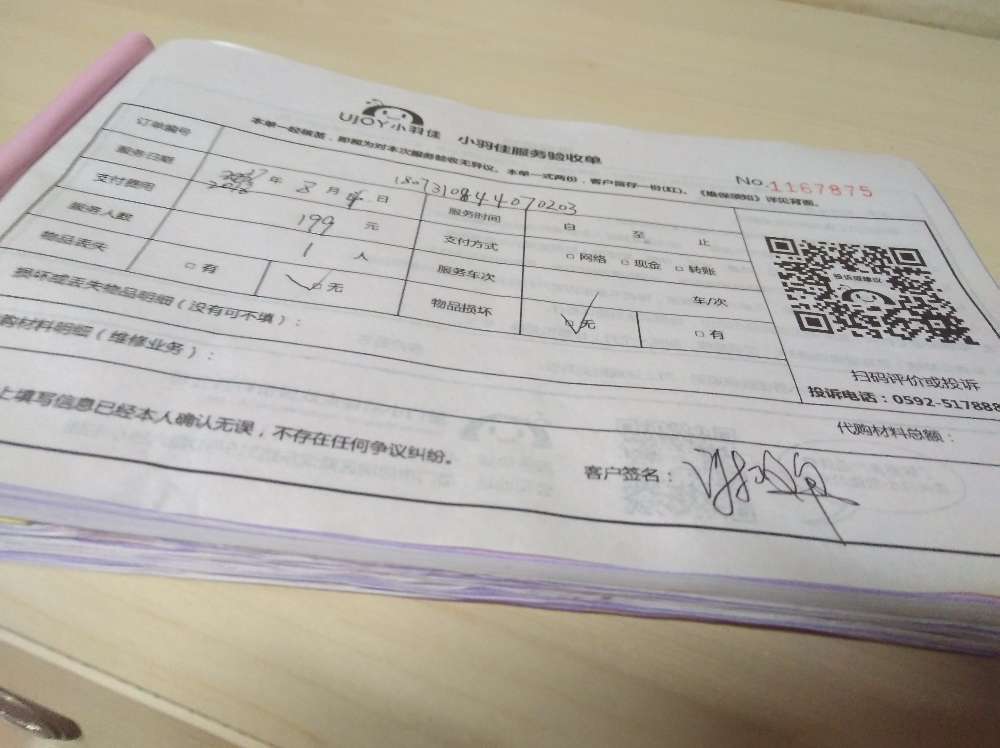 UJOY小羽佳 小羽佳服务验收单
本单一经签签,即视为对本次服务验收无异议。本单一式两份,客户留存一份(红)。《维保须知》详见背面。
No.1167875
订单编号 1807310844070203
服务日期 年 8 月 日 服务时间 自 至 止
支付费用 199 元 支付方式 □网络 □现金 □转账
服务人数 1 人 服务车次 车/次
物品丢失 □有 □无 物品损坏 □无 □有
损坏或丢失物品明细(没有可不填):
材料明细(维修业务):
投诉或建议
扫码评价或投诉
投诉电话:0592-517888
代购材料总额:
上填写信息已经本人确认无误,不存在任何争议纠纷。
客户签名: